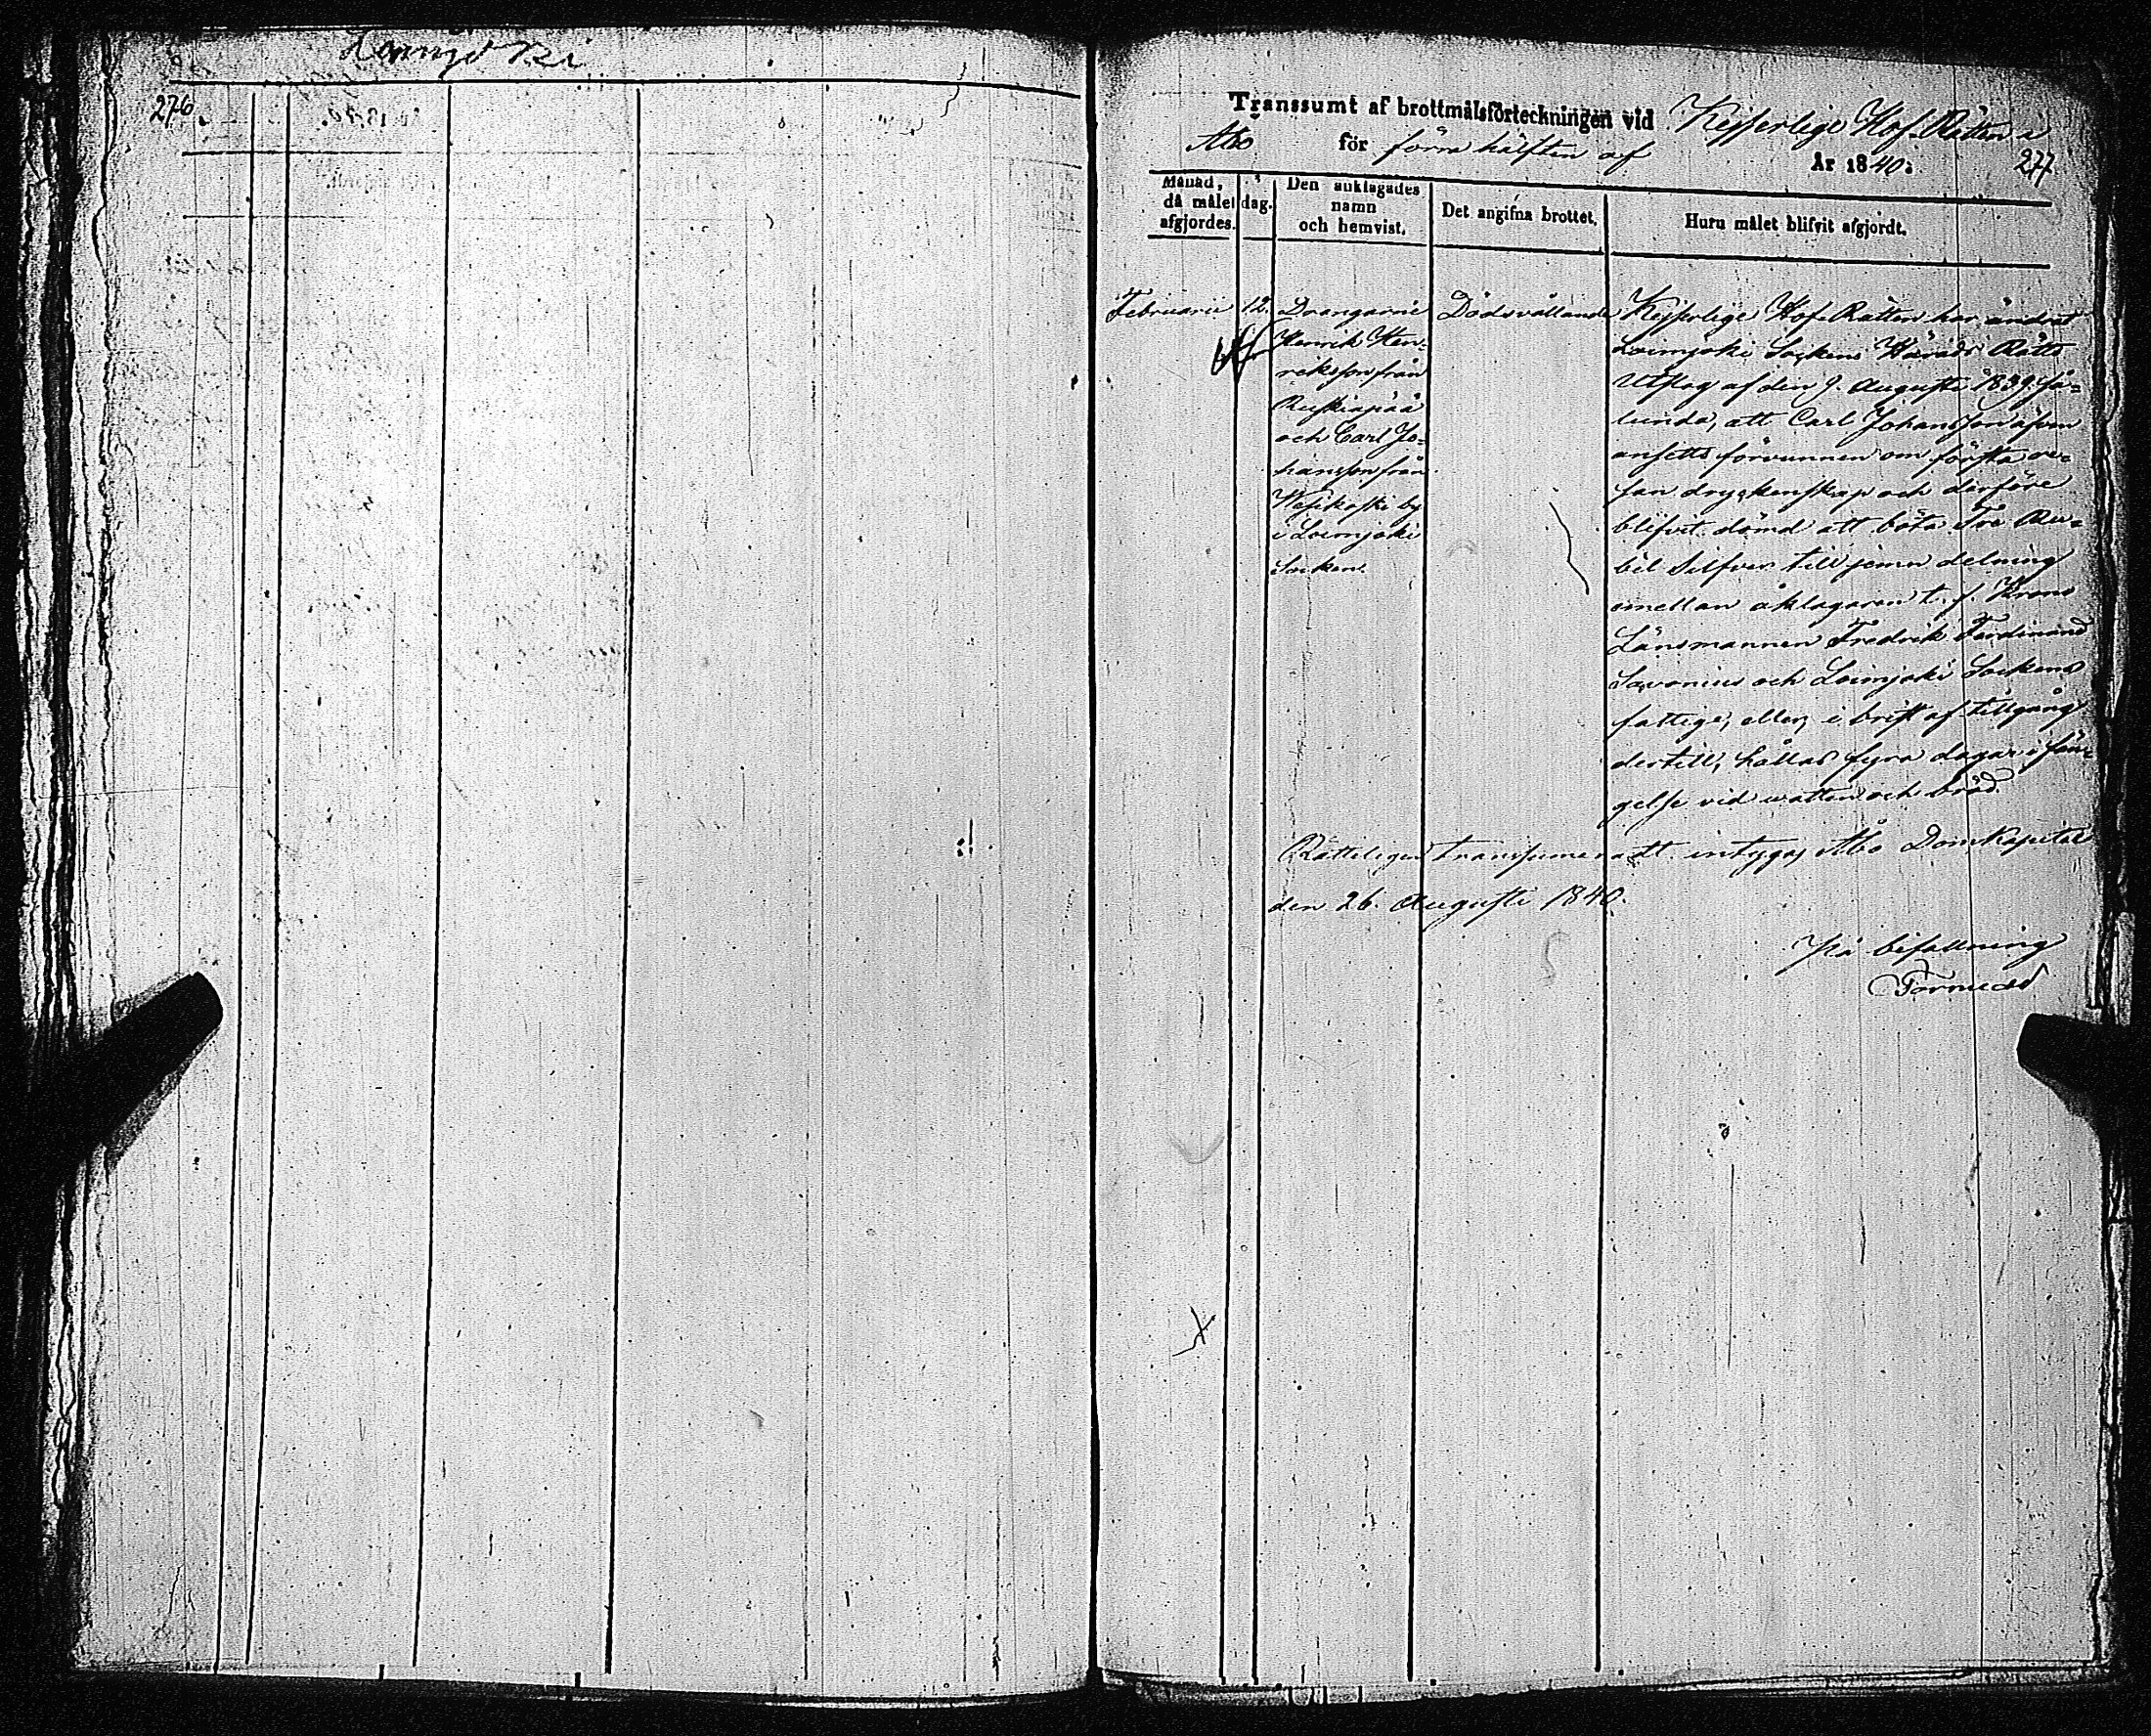 276.
Transsumt af brottmålsförteckningen vid Kejserlige Hof-Rätten i
Åbo för förra hälften af År 1840.
277
Månad, då målet afgjordes.
dag.
Den anklagades namn och hemvist.
Det angifna brottet.
Huru målet blifvit afgjordt.
Februarii
12.
Drangarne
Henrik Hen-
riksson från
och Carl Jo-
hansson från
by
i Loimjoki
Socken.
Dödsvållande
Kejserlige Hof-Rätten har ändrat
Loimjoki Sockens Härads Rätts
Utslag af den 9. Augusti 1839. så-
lunda, att Carl Johansson äfven
ansetts förvunnen om första re-
san dryckenskap och derföre
blifvit dömd att böta Tre Ru-
bel Silfver till jemn delning
emellan åklagaren t. f. Krono
Länsmannen Fredrik Ferdinand
Savonius och Loimjoki Sockens
fattige, eller, i brist af tillgång
dertill, hållas fyra dagar i fän-
gelse vid watten och bröd.
Rätteligen transsumeradt. intygar Åbo Domkapitel
den 26. Augusti 1840.
På befallning